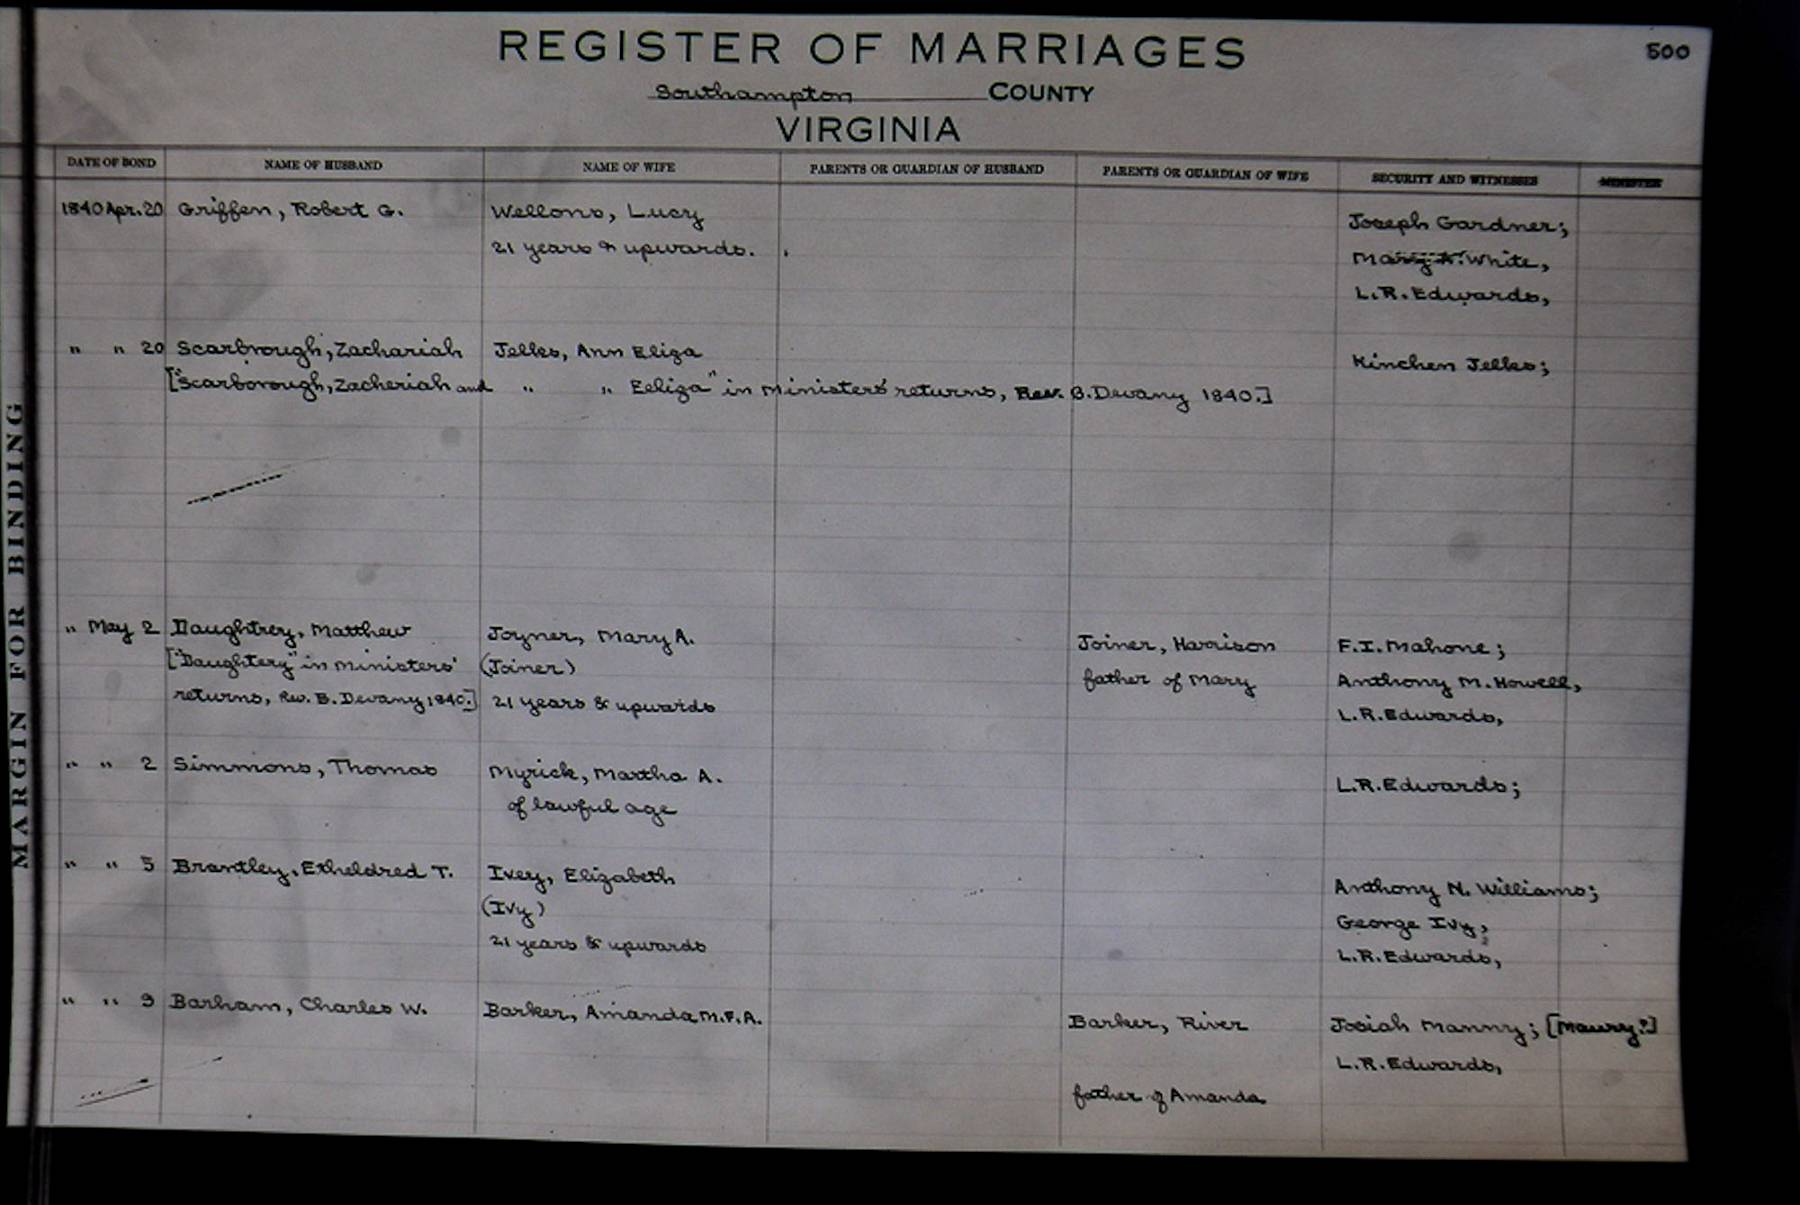 REGISTER OF MARRIAGES
500
Southampton COUNTY
VIRGINIA
DATE OF BOND NAME OF HUSBAND NAME OF WIFE PARENTS OR GUARDIAN OF HUSBAND PARENTS OR GUARDIAN OF WIFE SECURITY AND WITNESSES MINISTER
1840 Apr. 20 Griffen, Robert G. Wellons, Lucy Joseph Gardner;
21 years & upwards. White,
L.R. Edwards,
" " 20 Scarbrough, Zachariah Jelks, Ann Eliza Kinchen Jelks;
["Scarborough, Zacheriah and " " Eeliza" in Ministers' returns, Rev. B. Devany 1840.]
" May 2 Daughtrey, Matthew Joyner, Mary A. Joiner, Harrison F.I. Mahone;
["Daughtery" in Ministers' (Joiner) father of Mary Anthony M. Howell,
returns, Rev. B. Devany 1840.] 21 years & upwards L.R. Edwards,
" " 2 Simmons, Thomas Myrick, Martha A. L.R. Edwards;
of lawful age
" " 5 Brantley, Etheldred T. Ivey, Elizabeth Anthony N. Williams;
(Ivy) George Ivy,
21 years & upwards L.R. Edwards,
" " 9 Barham, Charles W. Barker, Amanda M.F.A. Barker, River Josiah Manny; [Maury?]
L.R. Edwards,
father of Amanda
MARGIN FOR BINDING